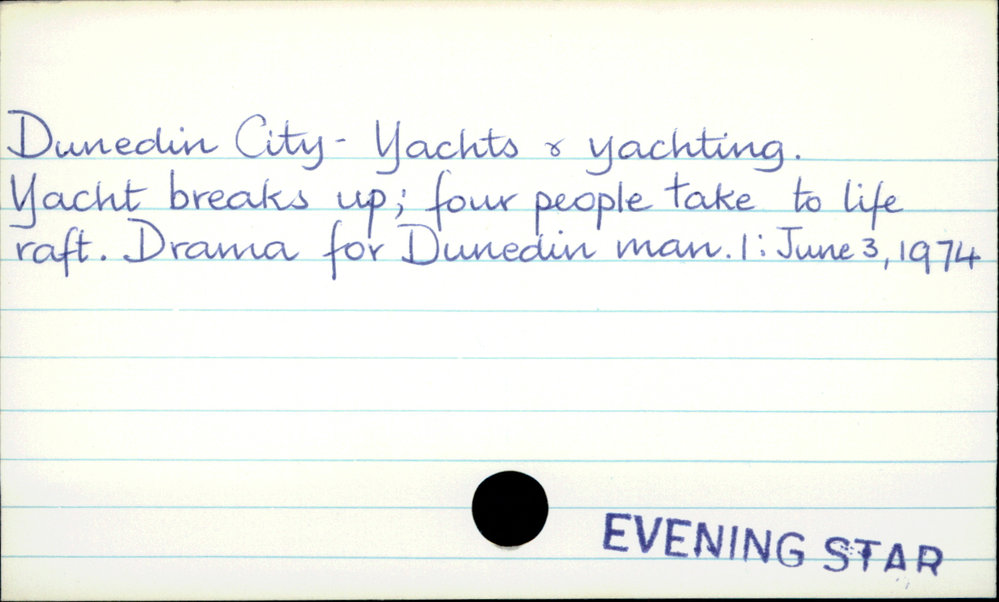 Dunedin City - Yachts & yachting.
Yacht breaks up; four people take to life
raft. Drama for Dunedin man. 1: June 3, 1974
EVENING STAR